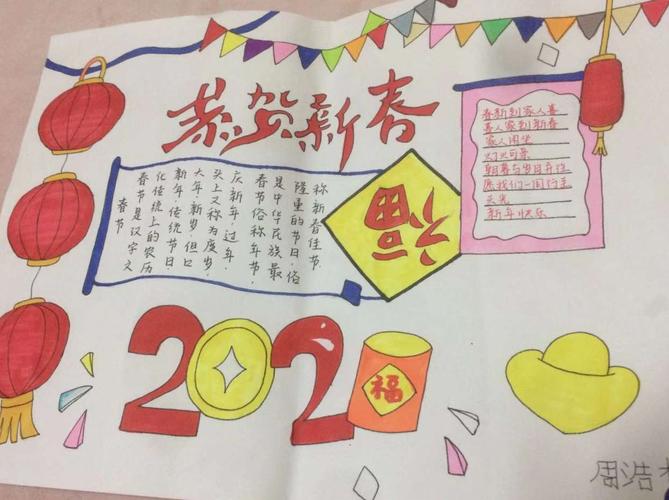 恭贺新春
春节
春节是汉字文
化传统上的农历
新年,传统节日
大年、新岁,但口
头上又称为度岁、
庆新年、过年.
春节俗称年节,
是中华民族最
隆重的节日,俗
称新春佳节.
福
春新到家人喜
喜人家到新春
家人闲坐
灯火可亲
朝暮与岁月并往
愿我们一同行至
天光
新年快乐
202
福
周浩